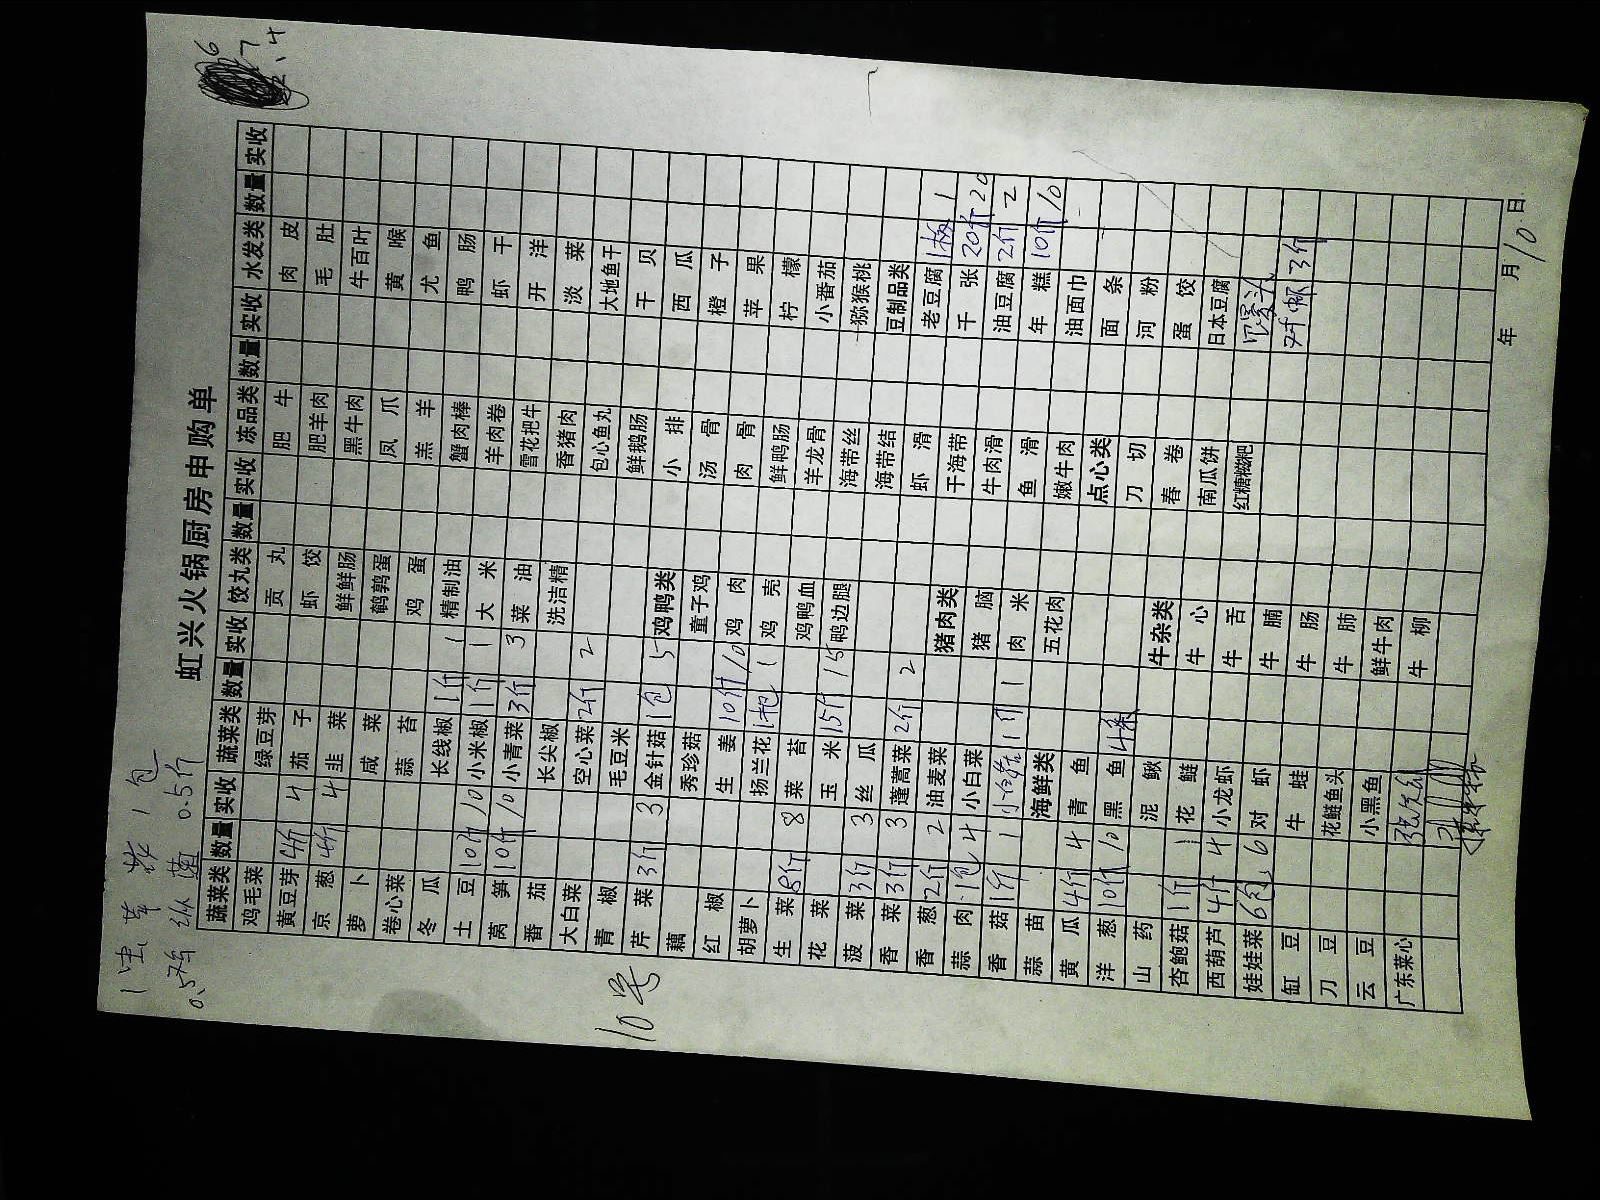 虹兴火锅厨房申购单
1 虫草花 1包
0.5 鸡纵菌 0.5斤
10号
蔬菜类 数量 实收 蔬菜类 数量 实收 饺丸类 数量 实收 冻品类 数量 实收 水发类 数量 实收
鸡毛菜 绿豆芽 贡丸 肥牛 肉皮
黄豆芽 4斤 4 茄子 虾饺 肥羊肉 毛肚
京葱 4斤 4 韭菜 鲜鲜肠 黑牛肉 牛百叶
萝卜 咸菜 鹌鹑蛋 凤爪 黄喉
卷心菜 蒜苔 鸡蛋 羔羊 尤鱼
冬瓜 长线椒 1斤 1 精制油 蟹肉棒 鸭肠
土豆 10斤 10 小米椒 1斤 1 大米 羊肉卷 虾干
莴笋 10斤 10 小青菜 3斤 3 菜油 雪花把牛 开洋
番茄 长尖椒 洗洁精 香猪肉 淡菜
大白菜 空心菜 2斤 2 包心鱼丸 大地鱼干
青椒 毛豆米 鲜鹅肠 干贝
芹菜 3斤 3 金针菇 1包 5 鸡鸭类 小排 西瓜
藕 秀珍菇 童子鸡 汤骨 橙子
红椒 生姜 10斤 10 鸡肉 肉骨 苹果
胡萝卜 扬兰花 1包 1 鸡壳 鲜鸭肠 柠檬
生菜 8斤 8 菜苔 鸡鸭血 羊龙骨 小番茄
花菜 玉米 15斤 15 鸭边腿 海带丝 猕猴桃
菠菜 3斤 3 丝瓜 海带结 豆制品类
香菜 3斤 3 蓬蒿菜 2斤 2 虾滑 老豆腐 1板 1
香葱 2斤 2 油麦菜 猪肉类 干海带 千张 20斤 20
蒜肉 1包 4 小白菜 猪脑 牛肉滑 油豆腐 2斤 2
香菇 1斤 1 1斤 1 肉米 鱼滑 年糕 10斤 10
蒜苗 海鲜类 五花肉 嫩牛肉 油面巾
黄瓜 4斤 4 青鱼 点心类 面条
洋葱 10斤 10 黑鱼 4条 刀切 河粉
山药 泥鳅 牛杂类 春卷 蛋饺
杏鲍菇 1斤 1 花鲢 牛心 南瓜饼 日本豆腐
西葫芦 4斤 4 小龙虾 牛舌 红糖糍粑
娃娃菜 6包 6 对虾 牛腩 3斤
缸豆 牛蛙 牛肠
刀豆 花鲢鱼头 牛肺
云豆 小黑鱼 鲜牛肉
广东菜心 牛柳
年 月 10 日